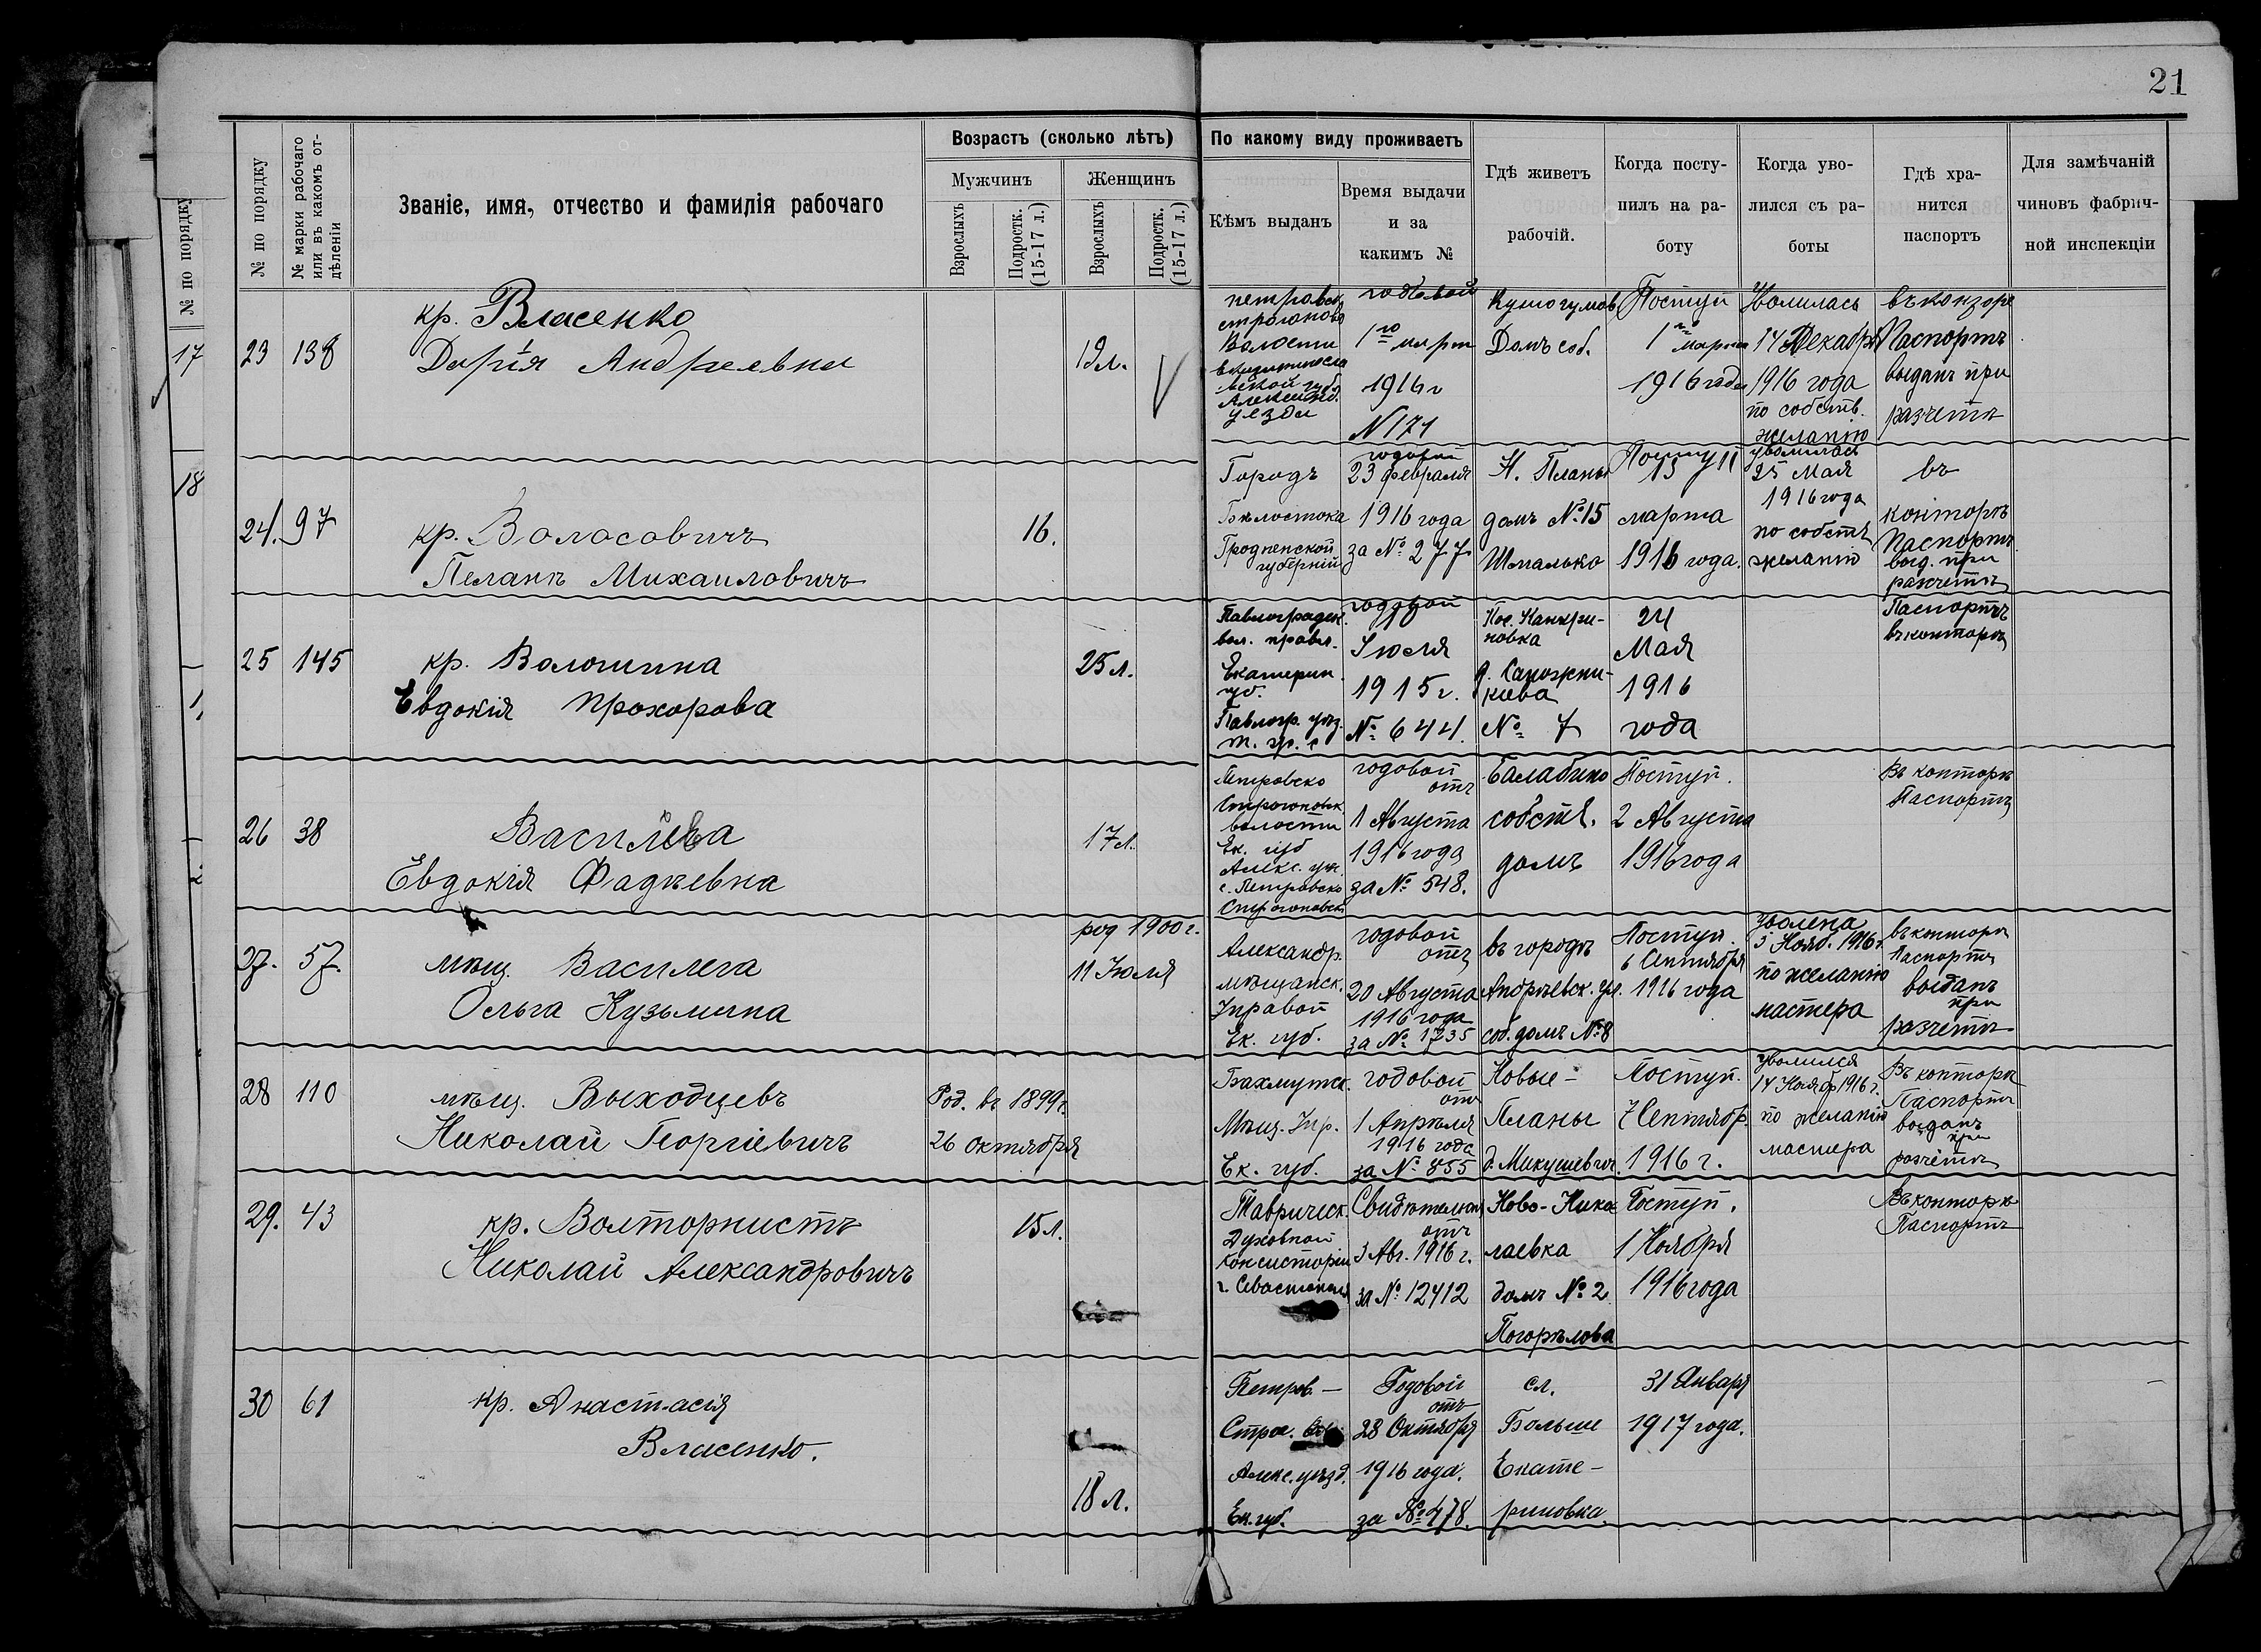 21
№ по порядку
№ марки рабочаго или въ какомъ отдѣленіи
Званіе, имя, отчество и фамилія рабочаго
Возрастъ (сколько лѣтъ)
Мужчинъ
Женщинъ
Взрослыхъ
Подростк. (15-17 л.)
Взрослыхъ
Подростк. (15-17 л.)
По какому виду проживаетъ
Кѣмъ выданъ
Время выдачи
и за
какимъ №
Гдѣ живетъ
рабочій.
Когда посту-
пилъ на ра-
боту
Когда уво-
лился съ ра-
боты
Гдѣ хра-
нится
паспортъ
Для замѣчаній
чиновъ фабрич-
ной инспекціи
№ по порядку
17
18
23 138
кр. Власенко
Дарія Андреевна
19л.
Волости
уезда
годовой
1го март
1916 г
N 171
Домъ соб.
Поступ
1го марта
1916 года
Уволилась
14 Декабря
1916 года
по собств.
желанію
Паспортъ
выданъ при
разчетѣ
24. 97
кр. Воласовичъ
Михаиловичъ
16.
Городъ
Бѣлостока
Гродненской
губерніи
годовой
23 февраля
1916 года
за № 277
Н. Планы
домъ № 15
Шмалько
Поступ
13
марта
1916 года.
уволился
25 Мая
1916 года
по собств
желанію
въ
конторѣ
Паспортъ
выд. при
разчетѣ
25 145
кр. Волошина
Евдокія Прохорова
25 л.
Павлоградск.
вол. правл.
Екатерин
губ.
Павлогр. уѣз.
годовой
Іюля
1915 г.
№ 644.
Пос. Канкри-
новка
д. Сапожни-
кова
№ 7
24
Мая
1916
года
Паспортъ
въ конторѣ
26 38
Василева
Евдокія Фадѣевна
17 л.
Петровско
волости
Ек. губ
Алекс. уѣ.
с. Петровско
годовой
отъ
1 Августа
1916 года
за № 548.
Балабино
собств.
домъ
Поступ.
2 Августа
1916 года
Въ конторѣ
Паспортъ
27. 57.
мѣщ. Василева
Ольга Кузьмина
род 1900 г.
11 Іюля
Александр.
мѣщанск.
Управой
Ек. губ.
годовой
отъ
20 Августа
1916 года
за № 1735
въ городѣ
Андрѣевск. ул.
соб. домъ № 8
Поступ.
6 Сентября
1916 года
Уволена
3 Нояб. 1916 г.
по желанію
мастера
въ конторѣ
Паспортъ
выданъ
при
разчетѣ
28 110
мѣщ. Выходцевъ
Николай Георгіевичъ
Род. въ 1899 г.
26 октября
Бахмутск.
Мѣщ. Упр.
Ек. губ.
годовой
отъ
1 Апрѣля
1916 года
за № 855
Новые-
Планы
д. Микушевич.
Поступ.
7 Сентябр.
1916 г.
Уволился
14 Ноябр 1916 г.
по желанію
мастера
Въ конторѣ
Паспортъ
выданъ
при
разчетѣ
29. 43
кр. Волторнистъ
Николай Александровичъ
15 л.
Таврическ.
Духовной
Консисторіи
г. Севастополя
Свидѣтельст
отъ
3 Авг. 1916 г.
за № 12412
Ново-Нико
лаевка
домъ № 2
Погорѣлова
Поступ.
1 Ноября
1916 года
Въ конторѣ
Паспортъ
30 61
кр. Анастасія
Власенко.
18 л.
Петров.-
Строг.
Алекс. уѣзд.
Ек. губ.
Годовой
отъ
28 Октября
1916 года.
за № 478.
сл.
Больше
Екате-
риновка.
31 Января
1917 года.